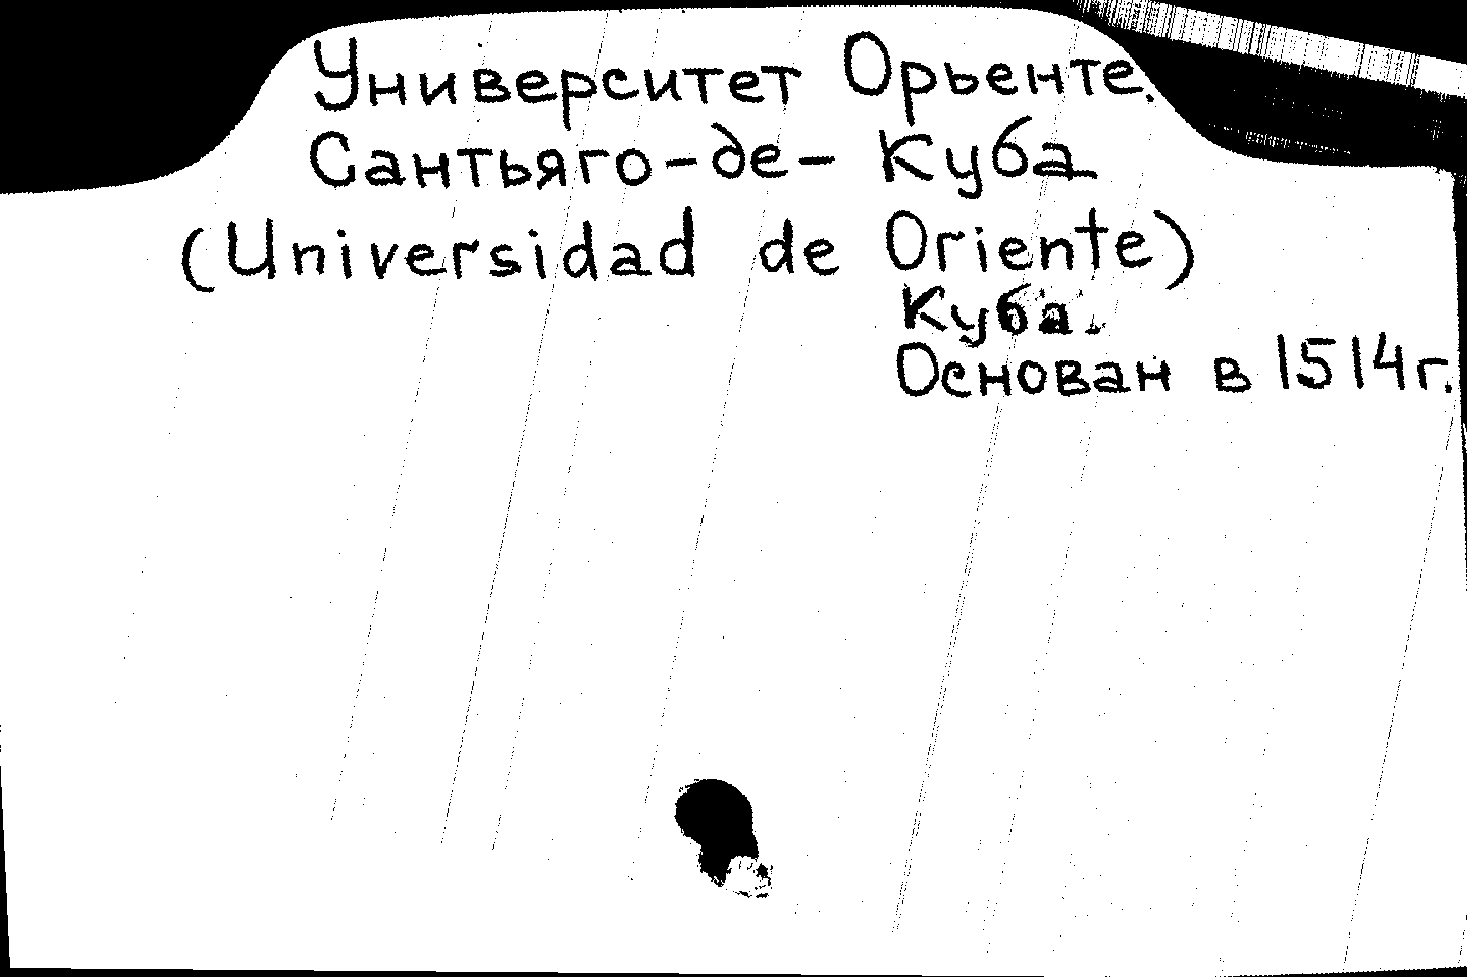 Университет Орьенте.
Сантьяго-де-Куба
(Universidad de Oriente)
Куба.
Основан в 1514г.